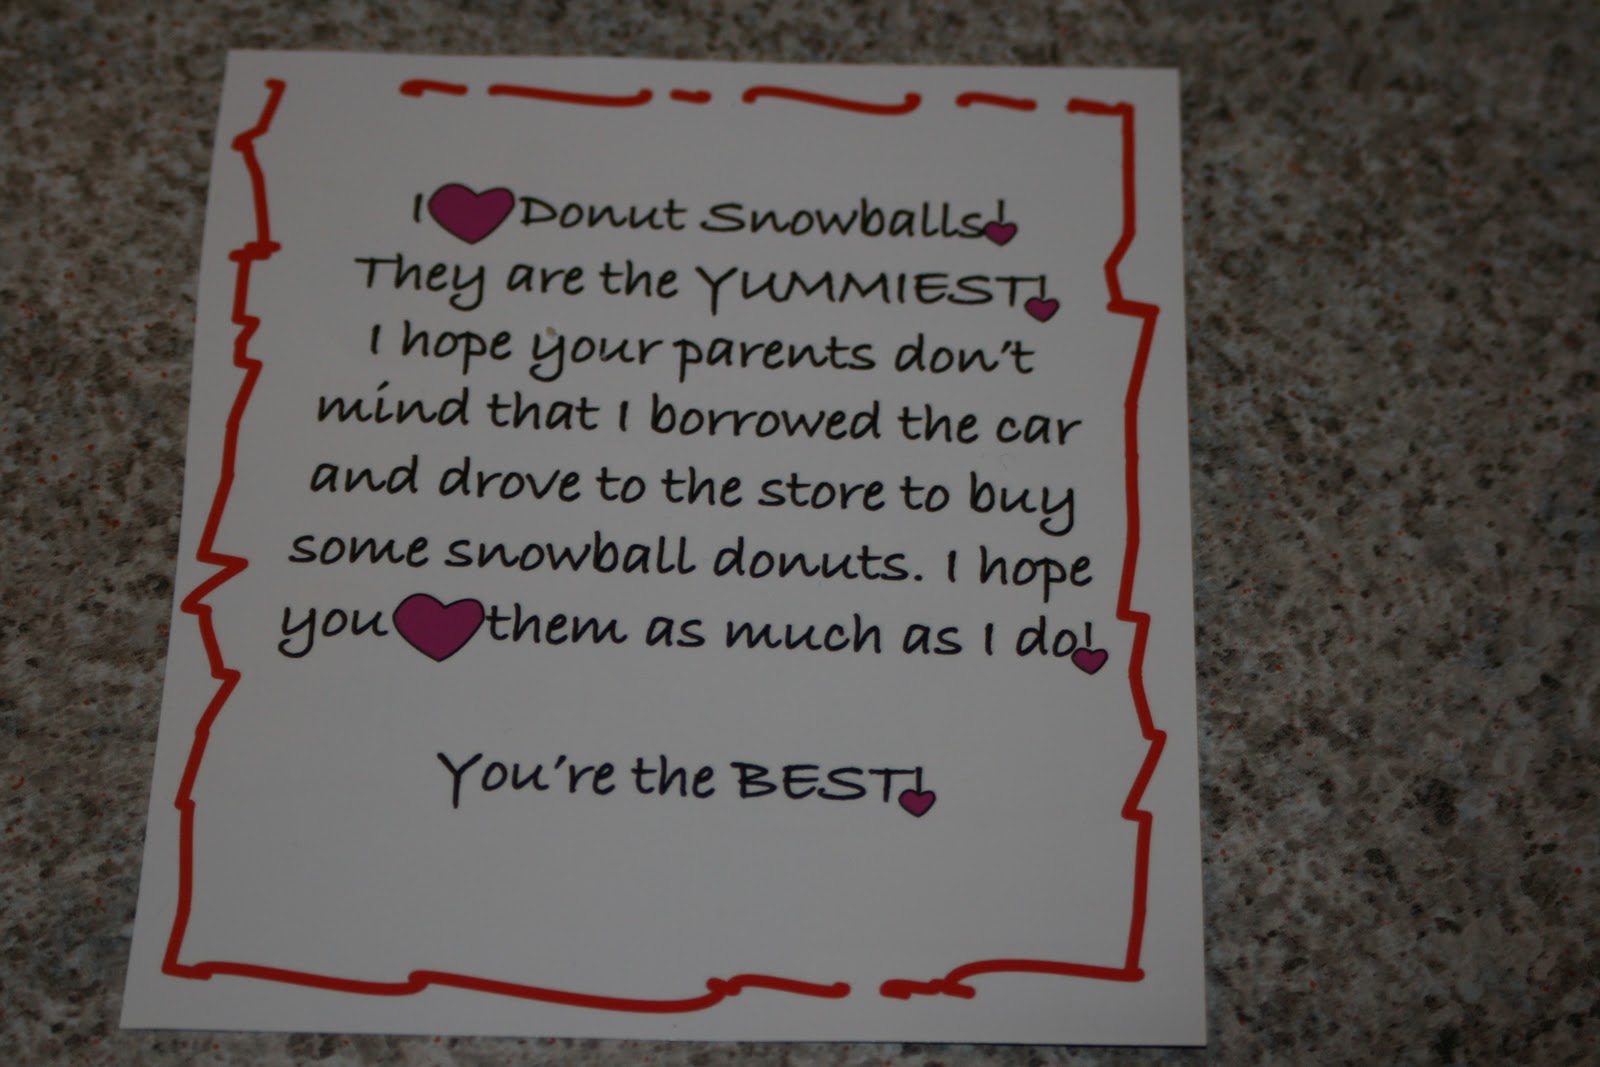 I ♥ Donut Snowballs!
They are the YUMMIEST!
I hope your parents don't
mind that I borrowed the car
and drove to the store to buy
some snowball donuts. I hope
you ♥ them as much as I do!
You're the BEST!